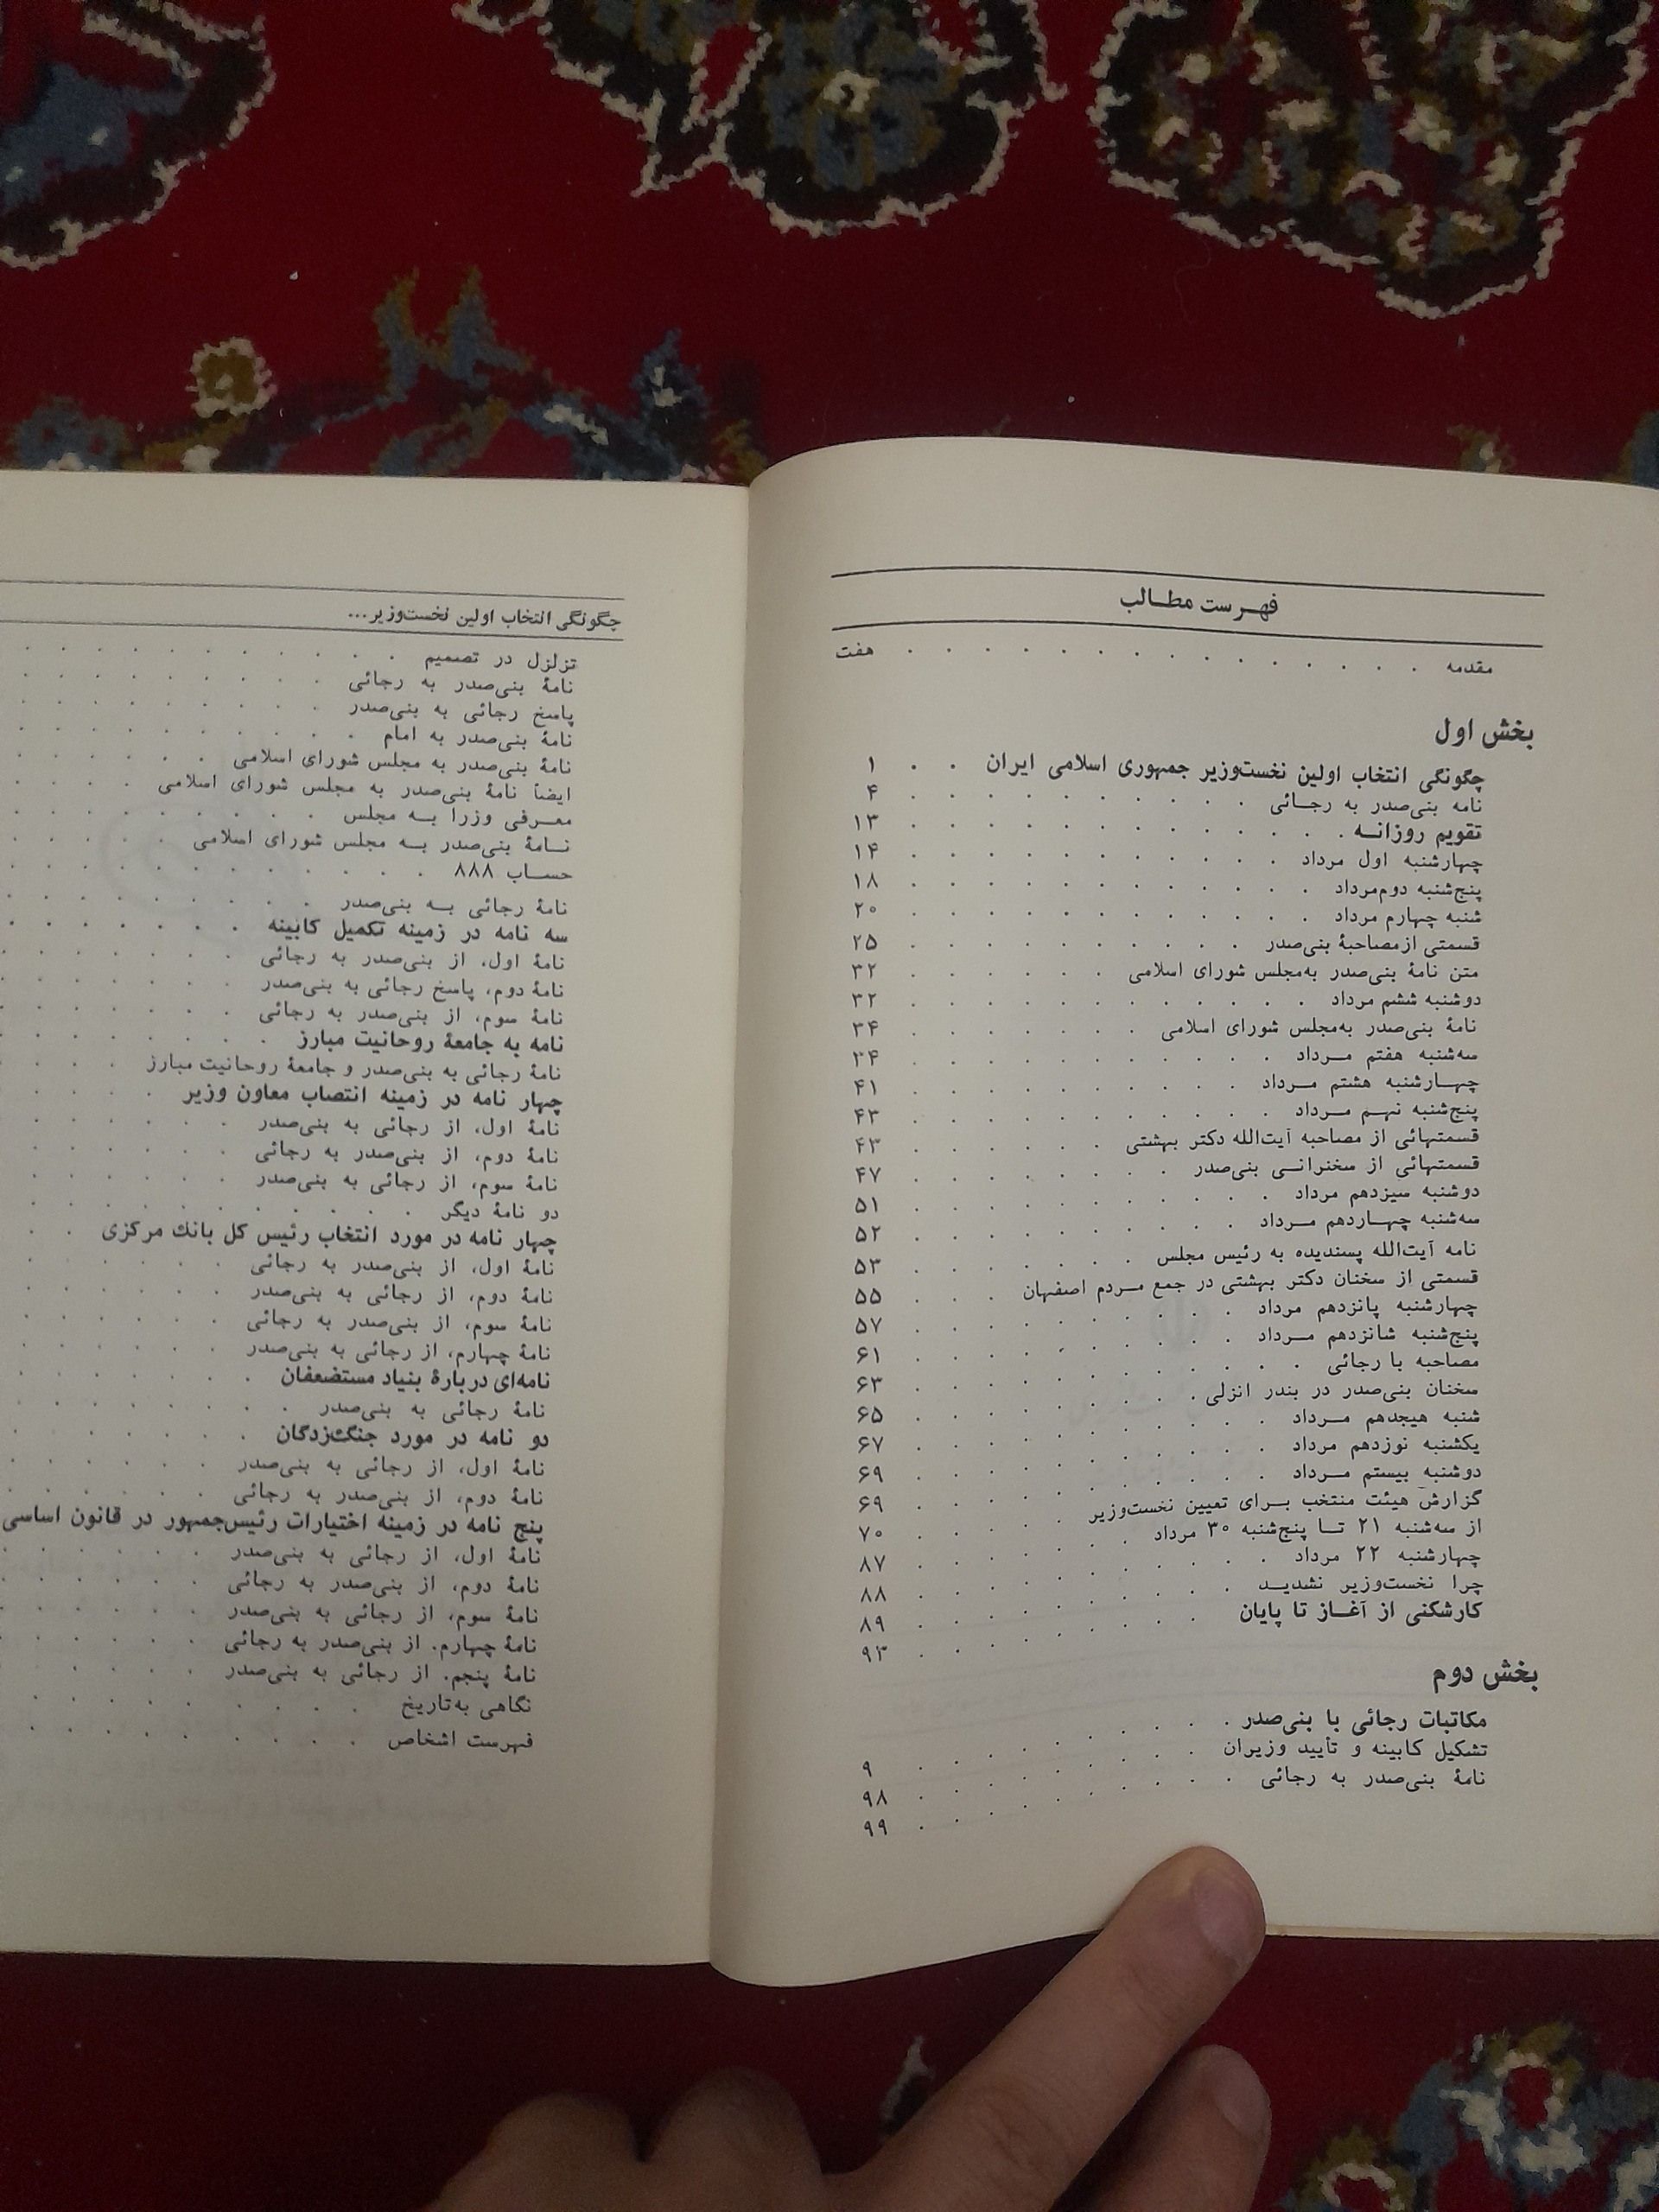 فهرست مطالب
مقدمه . . . . . . . . . . . . . . . . هفت
بخش اول
چگونگی انتخاب اولین نخست‌وزیر جمهوری اسلامی ایران . . ۱
نامه بنی‌صدر به رجائی . . . . . . . . . . ۴
تقویم روزانه . . . . . . . . . . . . . ۱۳
چهارشنبه اول مرداد . . . . . . . . . . . ۱۴
پنج‌شنبه دوم‌مرداد . . . . . . . . . . . . ۱۸
شنبه چهارم مرداد . . . . . . . . . . . . ۲۰
قسمتی ازمصاحبهٔ بنی‌صدر . . . . . . . . . . ۲۵
متن نامهٔ بنی‌صدر به‌مجلس شورای اسلامی . . . . . . ۳۲
دوشنبه ششم مرداد . . . . . . . . . . . . ۳۲
نامهٔ بنی‌صدر به‌مجلس شورای اسلامی . . . . . . . ۳۴
سه‌شنبه هفتم مرداد . . . . . . . . . . . ۳۴
چهارشنبه هشتم مرداد . . . . . . . . . . ۴۱
پنج‌شنبه نهم مرداد . . . . . . . . . . . ۴۳
قسمتهائی از مصاحبه آیت‌الله دکتر بهشتی . . . . . . ۴۳
قسمتهائی از سخنرانی بنی‌صدر . . . . . . . . ۴۷
دوشنبه سیزدهم مرداد . . . . . . . . . . . ۵۱
سه‌شنبه چهاردهم مرداد . . . . . . . . . . ۵۲
نامه آیت‌الله پسندیده به رئیس مجلس . . . . . . . ۵۳
قسمتی از سخنان دکتر بهشتی در جمع مردم اصفهان . . . ۵۵
چهارشنبه پانزدهم مرداد . . . . . . . . . . ۵۷
پنج‌شنبه شانزدهم مرداد . . . . . . . . . . ۶۱
مصاحبه با رجائی . . . . . . . . . . . . ۶۳
سخنان بنی‌صدر در بندر انزلی . . . . . . . . . ۶۵
شنبه هیجدهم مرداد . . . . . . . . . . . ۶۷
یکشنبه نوزدهم مرداد . . . . . . . . . . . ۶۹
دوشنبه بیستم مرداد . . . . . . . . . . . ۶۹
گزارش هیئت منتخب برای تعیین نخست‌وزیر . . . . . . ۷۰
از سه‌شنبه ۲۱ تا پنج‌شنبه ۳۰ مرداد . . . . . . . ۸۷
چهارشنبه ۲۲ مرداد . . . . . . . . . . . ۸۸
چرا نخست‌وزیر نشدید . . . . . . . . . . ۸۹
کارشکنی از آغاز تا پایان . . . . . . . . . ۹۳
بخش دوم
مکاتبات رجائی با بنی‌صدر . . . . . . . . . ۹
تشکیل کابینه و تأیید وزیران . . . . . . . . . ۹۸
نامهٔ بنی‌صدر به رجائی . . . . . . . . . . ۹۹
چگونگی انتخاب اولین نخست‌وزیر...
تزلزل در تصمیم
نامهٔ بنی‌صدر به رجائی
پاسخ رجائی به بنی‌صدر
نامهٔ بنی‌صدر به امام
نامهٔ بنی‌صدر به مجلس شورای اسلامی
ایضاً نامهٔ بنی‌صدر به مجلس شورای اسلامی
معرفی وزرا به مجلس
نامهٔ بنی‌صدر به مجلس شورای اسلامی
حساب ۸۸۸
نامهٔ رجائی به بنی‌صدر
سه نامه در زمینه تکمیل کابینه
نامهٔ اول، از بنی‌صدر به رجائی
نامهٔ دوم، پاسخ رجائی به بنی‌صدر
نامهٔ سوم، از بنی‌صدر به رجائی
نامه به جامعهٔ روحانیت مبارز
نامهٔ رجائی به بنی‌صدر و جامعهٔ روحانیت مبارز
چهار نامه در زمینه انتصاب معاون وزیر
نامهٔ اول، از رجائی به بنی‌صدر
نامهٔ دوم، از بنی‌صدر به رجائی
نامهٔ سوم، از رجائی به بنی‌صدر
دو نامهٔ دیگر
چهار نامه در مورد انتخاب رئیس کل بانک مرکزی
نامهٔ اول، از بنی‌صدر به رجائی
نامهٔ دوم، از رجائی به بنی‌صدر
نامهٔ سوم، از بنی‌صدر به رجائی
نامهٔ چهارم، از رجائی به بنی‌صدر
نامه‌ای دربارهٔ بنیاد مستضعفان
نامهٔ رجائی به بنی‌صدر
دو نامه در مورد جنگ‌زدگان
نامهٔ اول، از رجائی به بنی‌صدر
نامهٔ دوم، از بنی‌صدر به رجائی
پنج نامه در زمینه اختیارات رئیس‌جمهور در قانون اساسی
نامهٔ اول، از رجائی به بنی‌صدر
نامهٔ دوم، از بنی‌صدر به رجائی
نامهٔ سوم، از رجائی به بنی‌صدر
نامهٔ چهارم. از بنی‌صدر به رجائی
نامهٔ پنجم. از رجائی به بنی‌صدر
نگاهی به‌تاریخ
فهرست اشخاص